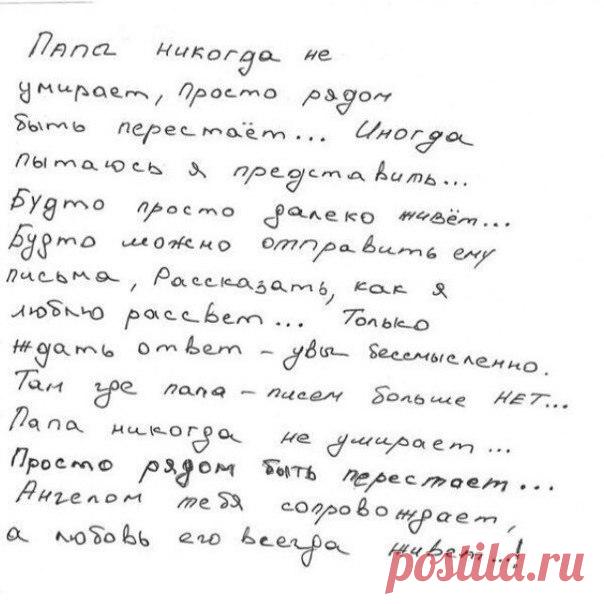 Папа никогда не
умирает, просто рядом
быть перестаёт... Иногда
пытаюсь я представить...
Будто просто далеко живёт...
Будто можно отправить ему
письма, Рассказать, как я
люблю рассвет... Только
ждать ответ - увы бессмысленно.
Там где папа - писем больше НЕТ...
Папа никогда не умирает...
Просто рядом быть перестает...
Ангелом тебя сопровождает,
а любовь его всегда живет...!
postila.ru